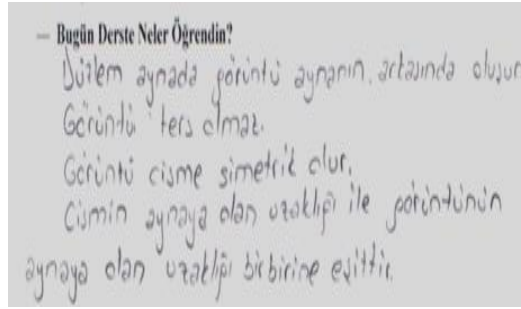 — Bugün Derste Neler Öğrendin?
Düzlem aynada görüntü aynanın. arkasında oluşur
Görüntü ters olmaz.
Görüntü cisme simetrik olur.
Cismin aynaya olan uzaklığı ile görüntünün
aynaya olan uzaklığı birbirine eşittir.